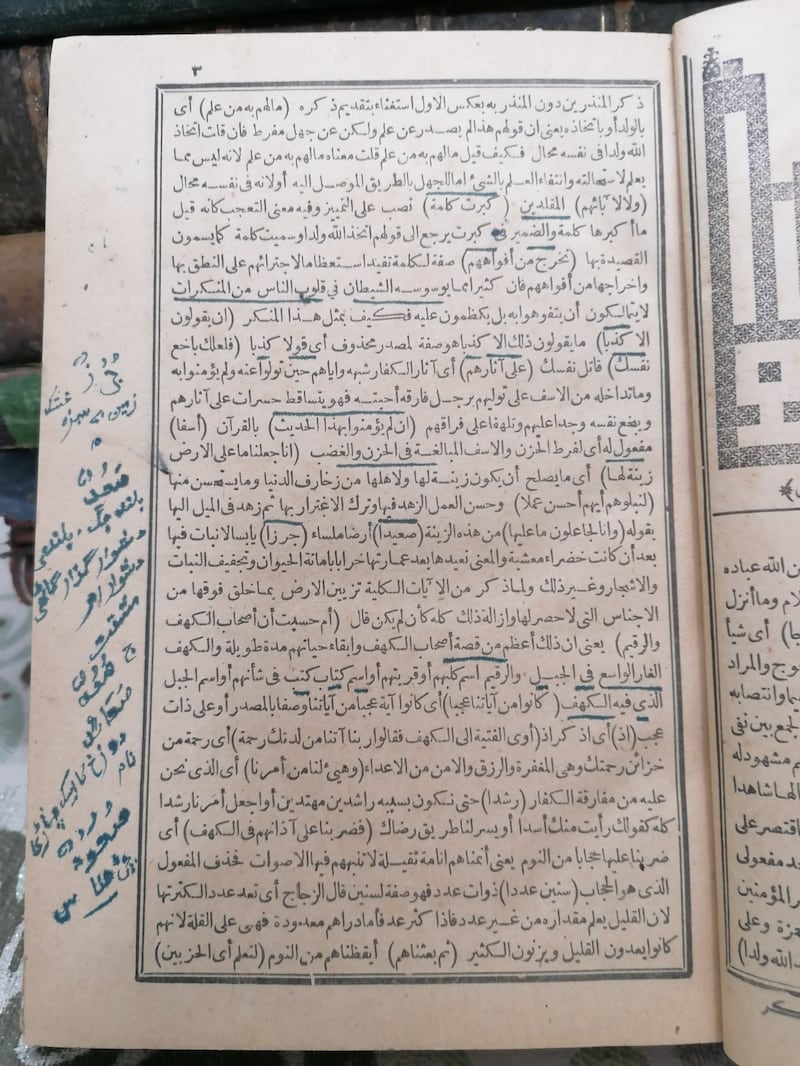 ٣
ذكر المنذرين دون المنذر به بعكس الاول استغناء بتقديم ذكره (مالهم به من علم) أى
بالولد أو باتخاذه يعنى ان قولهم هذا لم يصدر عن علم ولكن عن جهل مفرط فان قلت اتخاذ
الله ولدا فى نفسه محال فكيف قيل مالهم به من علم قلت معناه مالهم به من علم لانه ليس مما
يعلم لاستحالته وانتفاء العلم بالشئ اما للجهل بالطريق الموصل اليه أو لانه فى نفسه محال
(ولا لآبائهم) المقلدين (كبرت كلمة) نصب على التمييز وفيه معنى التعجب كانه قيل
ما أكبرها كلمة والضمير فى كبرت يرجع الى قولهم اتخذ الله ولدا وسميت كلمة كما يسمون
القصيدة بها (تخرج من أفواههم) صفة لكلمة تفيد استعظاما لاجترائهم على النطق بها
واخراجها من أفواههم فان كثيرا مما يوسوسه الشيطان في قلوب الناس من المنكرات
لا يتمالكون أن يتفوهوا به بل يكظمون عليه فكيف بمثل هذا المنكر (ان يقولون
الا كذبا) ما يقولون ذلك الا كذبا هو صفة لمصدر محذوف أى قولا كذبا (فلعلك باخع
نفسك) قاتل نفسك (على آثارهم) أى آثار الكفار شبهه واياهم حين تولوا عنه ولم يؤمنوا به
وما تداخله من الاسف على توليهم برجل فارقه أحبته فهو يتساقط حسرات على آثارهم
ويبخع نفسه وجدا عليهم وتلهفا على فراقهم (ان لم يؤمنوا بهذا الحديث) بالقرآن (أسفا)
مفعول له أى لفرط الحزن والاسف المبالغة فى الحزن والغضب (انا جعلنا ما على الارض
زينة لها) أى ما يصلح أن يكون زينة لها ولاهلها من زخارف الدنيا وما يستحسن منها
(لنبلوهم أيهم أحسن عملا) وحسن العمل الزهد فيها وترك الاغترار بها ثم زهد فى الميل اليها
بقوله (وانا لجاعلون ما عليها) من هذه الزينة (صعيدا) أرضا ملساء (جرزا) يابسا لا نبات فيها
بعد أن كانت خضراء معشبة والمعنى نعيدها بعد عمارتها خرابا باماتة الحيوان وتجفيف النبات
والاشجار وغير ذلك ولما ذكر من الآيات الكلية تزيين الارض بما خلق فوقها من
الاجناس التى لا حصر لها وازالة ذلك كله كأن لم يكن قال (أم حسبت أن أصحاب الكهف
والرقيم) يعنى ان ذلك أعظم من قصة أصحاب الكهف وابقاء حياتهم مدة طويلة والكهف
الغار الواسع فى الجبل والرقيم اسم كلبهم أو قريتهم أو اسم كتاب كتب فى شأنهم أو اسم الجبل
الذى فيه الكهف (كانوا من آياتنا عجبا) أى كانوا آية عجبا من آياتنا وصفا بالمصدر أو على ذات
عجب (اذ) أى اذكر اذ (أوى الفتية الى الكهف فقالوا ربنا آتنا من لدنك رحمة) أى رحمة من
خزائن رحمتك وهى المغفرة والرزق والامن من الاعداء (وهيئ لنا من أمرنا) أى الذى نحن
عليه من مفارقة الكفار (رشدا) حتى نكون بسببه راشدين مهتدين أو اجعل أمرنا رشدا
كله كقولك رأيت منك أسدا أو يسر لنا طريق رضاك (فضربنا على آذانهم فى الكهف) أى
ضربنا عليها حجابا من النوم يعنى أنمناهم انامة ثقيلة لا تنبههم فيها الاصوات فحذف المفعول
الذى هو الحجاب (سنين عددا) ذوات عدد فهو صفة لسنين قال الزجاج أى تعد عددا لكثرتها
لان القليل يعلم مقداره من غير عدد فاذا كثر عد فأما دراهم معدودة فهى على القلة لانهم
كانوا يعدون القليل ويزنون الكثير (ثم بعثناهم) أيقظناهم من النوم (لنعلم أى الحزبين)
ن الله عباده
لام وما أنزل
جا) أى شيأ
عوج والمراد
لجمع بين نفى
م مشهود له
الها شاهدا
فاقتصر على
حد مفعولى
ر المؤمنين
وعلى
ذ الله ولدا)